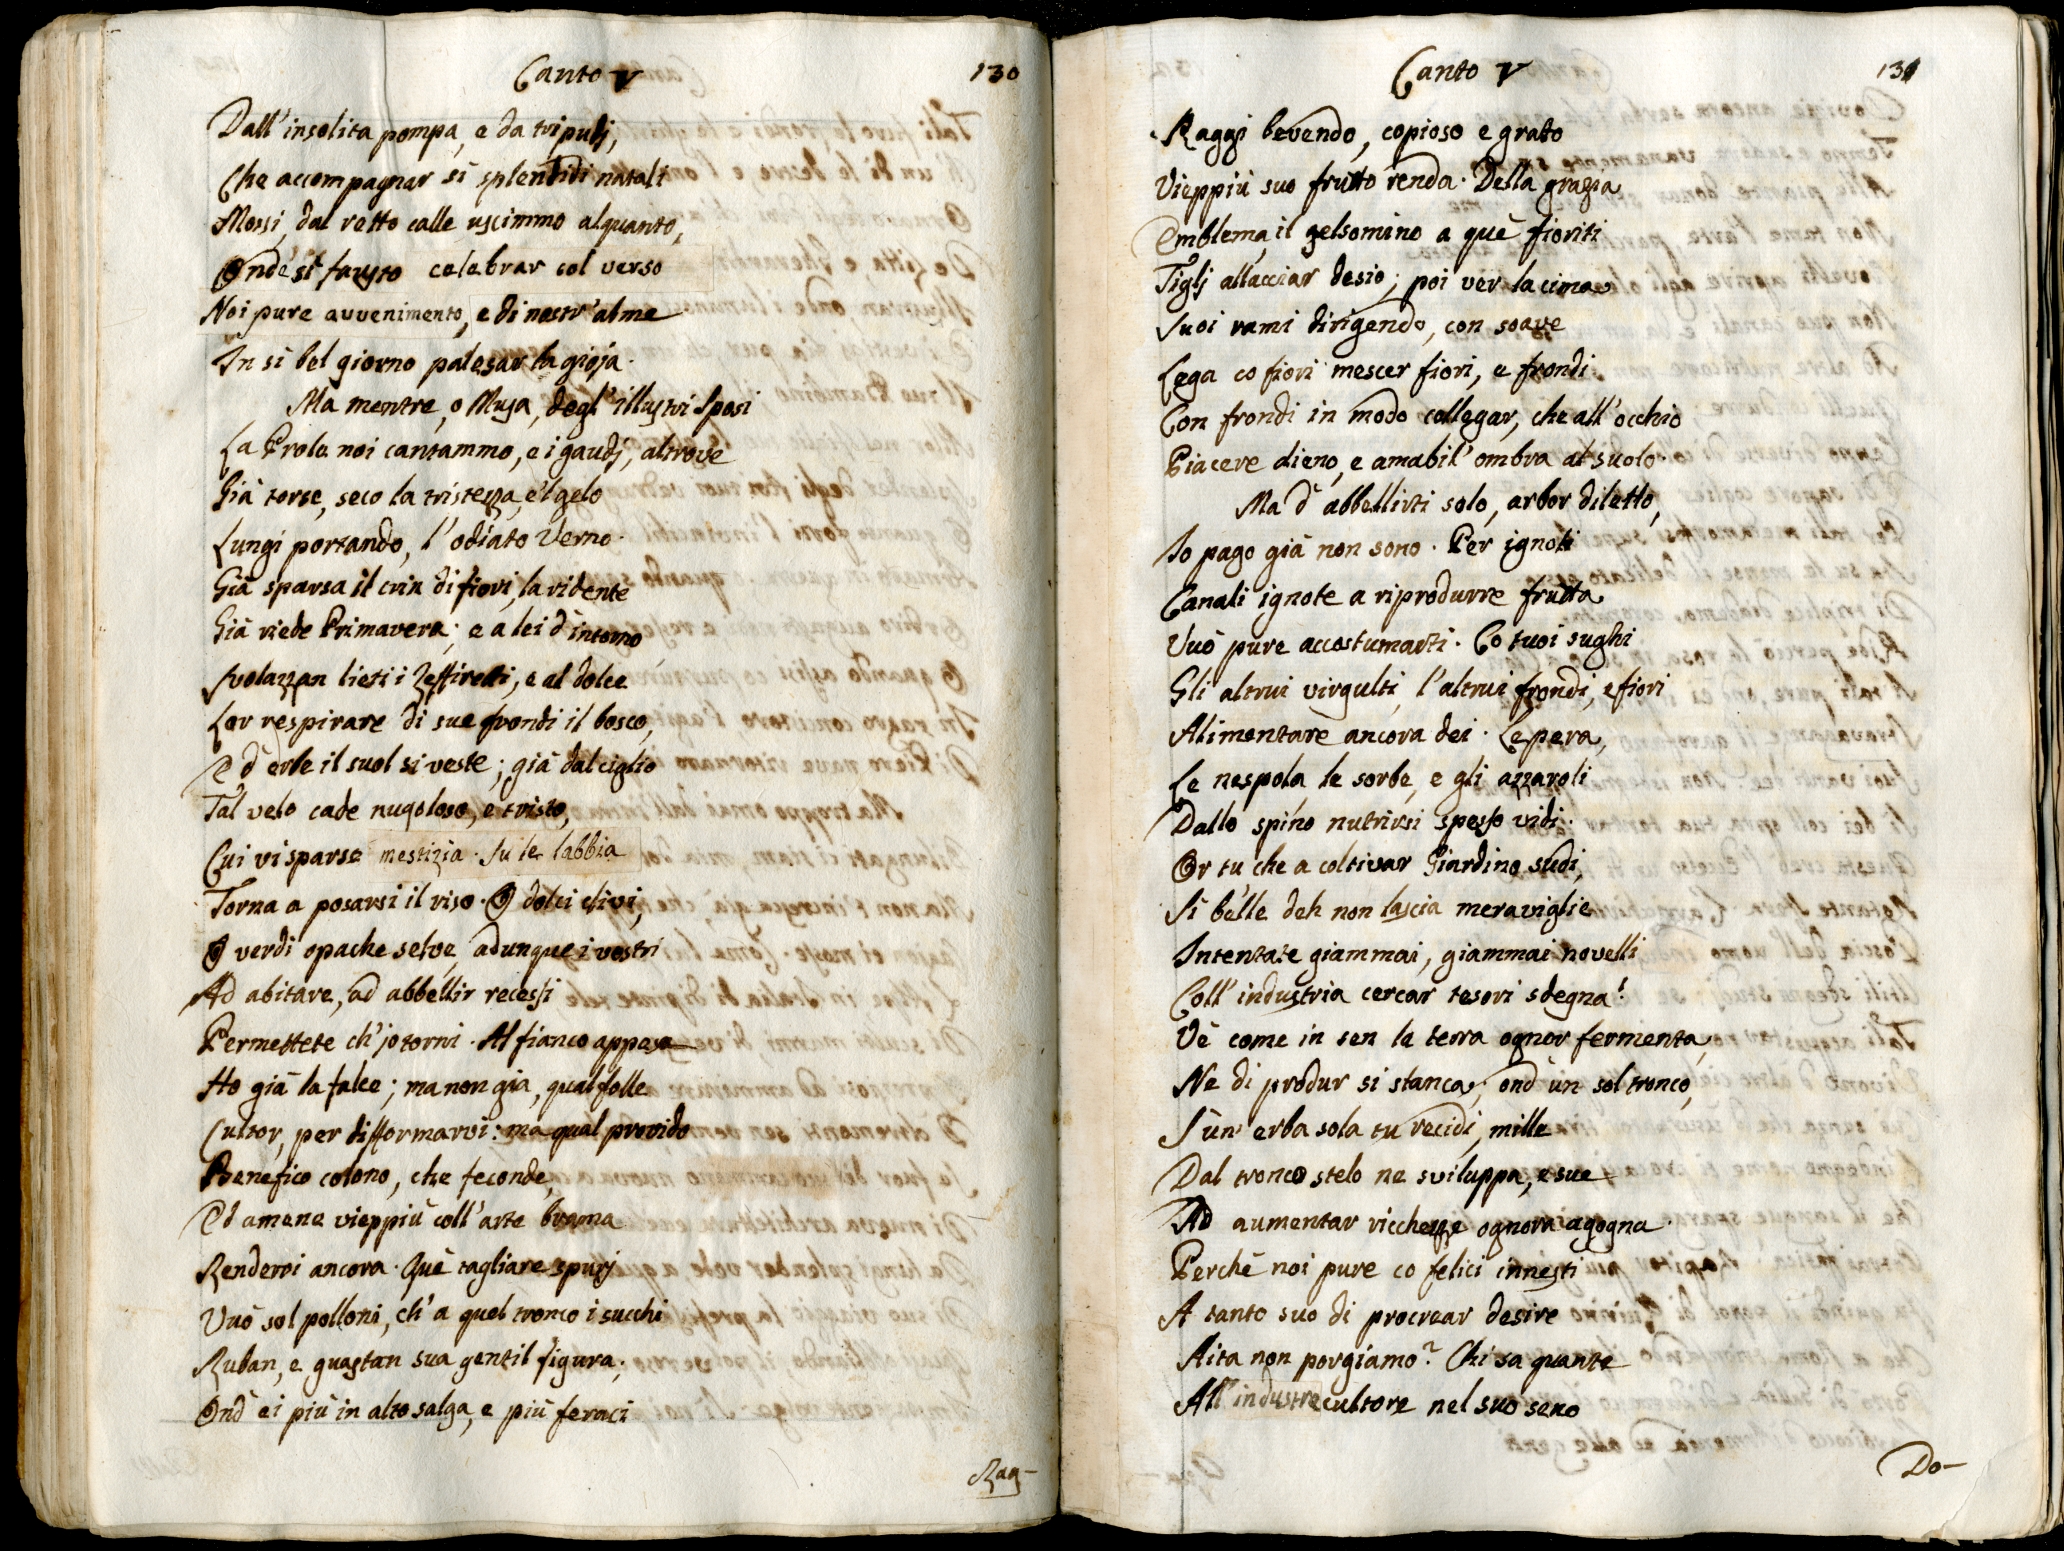 Canto V
130
Dall'insolita pompa, e da tripudj,
Che accompagnar sì splendidi natali
Mossi, dal retto calle uscimmo alquanto,
Onde sì fausto celebrar col verso
Noi pure avvenimento, e di nostr'alme
In sì bel giorno palesar la gioja.
Ma mentre, o Musa, degl'illustri Sposi
La Prole noi cantammo, e i gaudj, altrove
Già torse, seco la tristezza, e'l gelo
Lungi portando, l'odiato Verno.
Già sparsa il crin di fiori, la ridente
Già riede Primavera; e a lei d'intorno
Svolazzan lieti i Zeffiretti, e al dolce
Lor respirare di sue frondi il bosco,
E d'erbe il suol si veste; già dal ciglio
Tal velo cade nugoloso, e tristo,
Cui vi sparse mestizia. Su le labbia
Torna a posarsi il riso. O dolci clivi,
O verdi opache selve, adunque i vostri
Ad abitare, ad abbellir recessi
Permettete ch'jo torni. Al fianco appesa
Ho già la falce; ma non già, qual folle
Cultor, per difformarvi: ma qual provido
Benefico colono, che feconde,
Ed amene vieppiù coll'arte brama
Rendervi ancora. Què tagliare spurj
Vuò sol polloni, ch'a quel tronco i succhi
Ruban, e guastan sua gentil figura;
Ond'ei più in alto salga, e più feraci
Rag-
Canto V
131
Raggi bevendo, copioso e grato
Vieppiù suo frutto renda. Della grazia
Emblema, il gelsomino a què fioriti
Tiglj allacciar desio; poi ver la cima
Suoi rami dirigendo, con soave
Lega co fiori mescer fiori, e frondi
Con frondi in modo collegar, che all'occhio
Piacere dieno, e amabil'ombra al suolo.
Ma d'abbellirti solo, arbor diletto,
Io pago già non sono. Per ignoti
Canali ignote a riprodurre frutta
Vuò pure accostumarti. Co tuoi sughi
Gli altrui virgulti, l'altrui frondi, e fiori
Alimentare ancora dei. Le pera,
Le nespola, le sorbe, e gli azzaroli
Dallo spino nutrirsi spesso vidi.
Or tu che a coltivar Giardino sudi,
Sì belle deh non lascia meraviglie
Intentate giammai, giammai novelli
Coll'industria cercar tesori sdegna!
Vè come in sen la terra ognor fermenta,
Ne di produr si stanca; ond'un sol tronco,
S'un'erba sola tu recidi, mille
Dal tronco stelo ne sviluppa, e sue
Ad aumentar ricchezze ognora agogna.
Perchè noi pure co felici innesti
A tanto suo di procrear desire
Aita non porgiamo? Chi sa quante
All'industre cultore nel suo seno
Do-